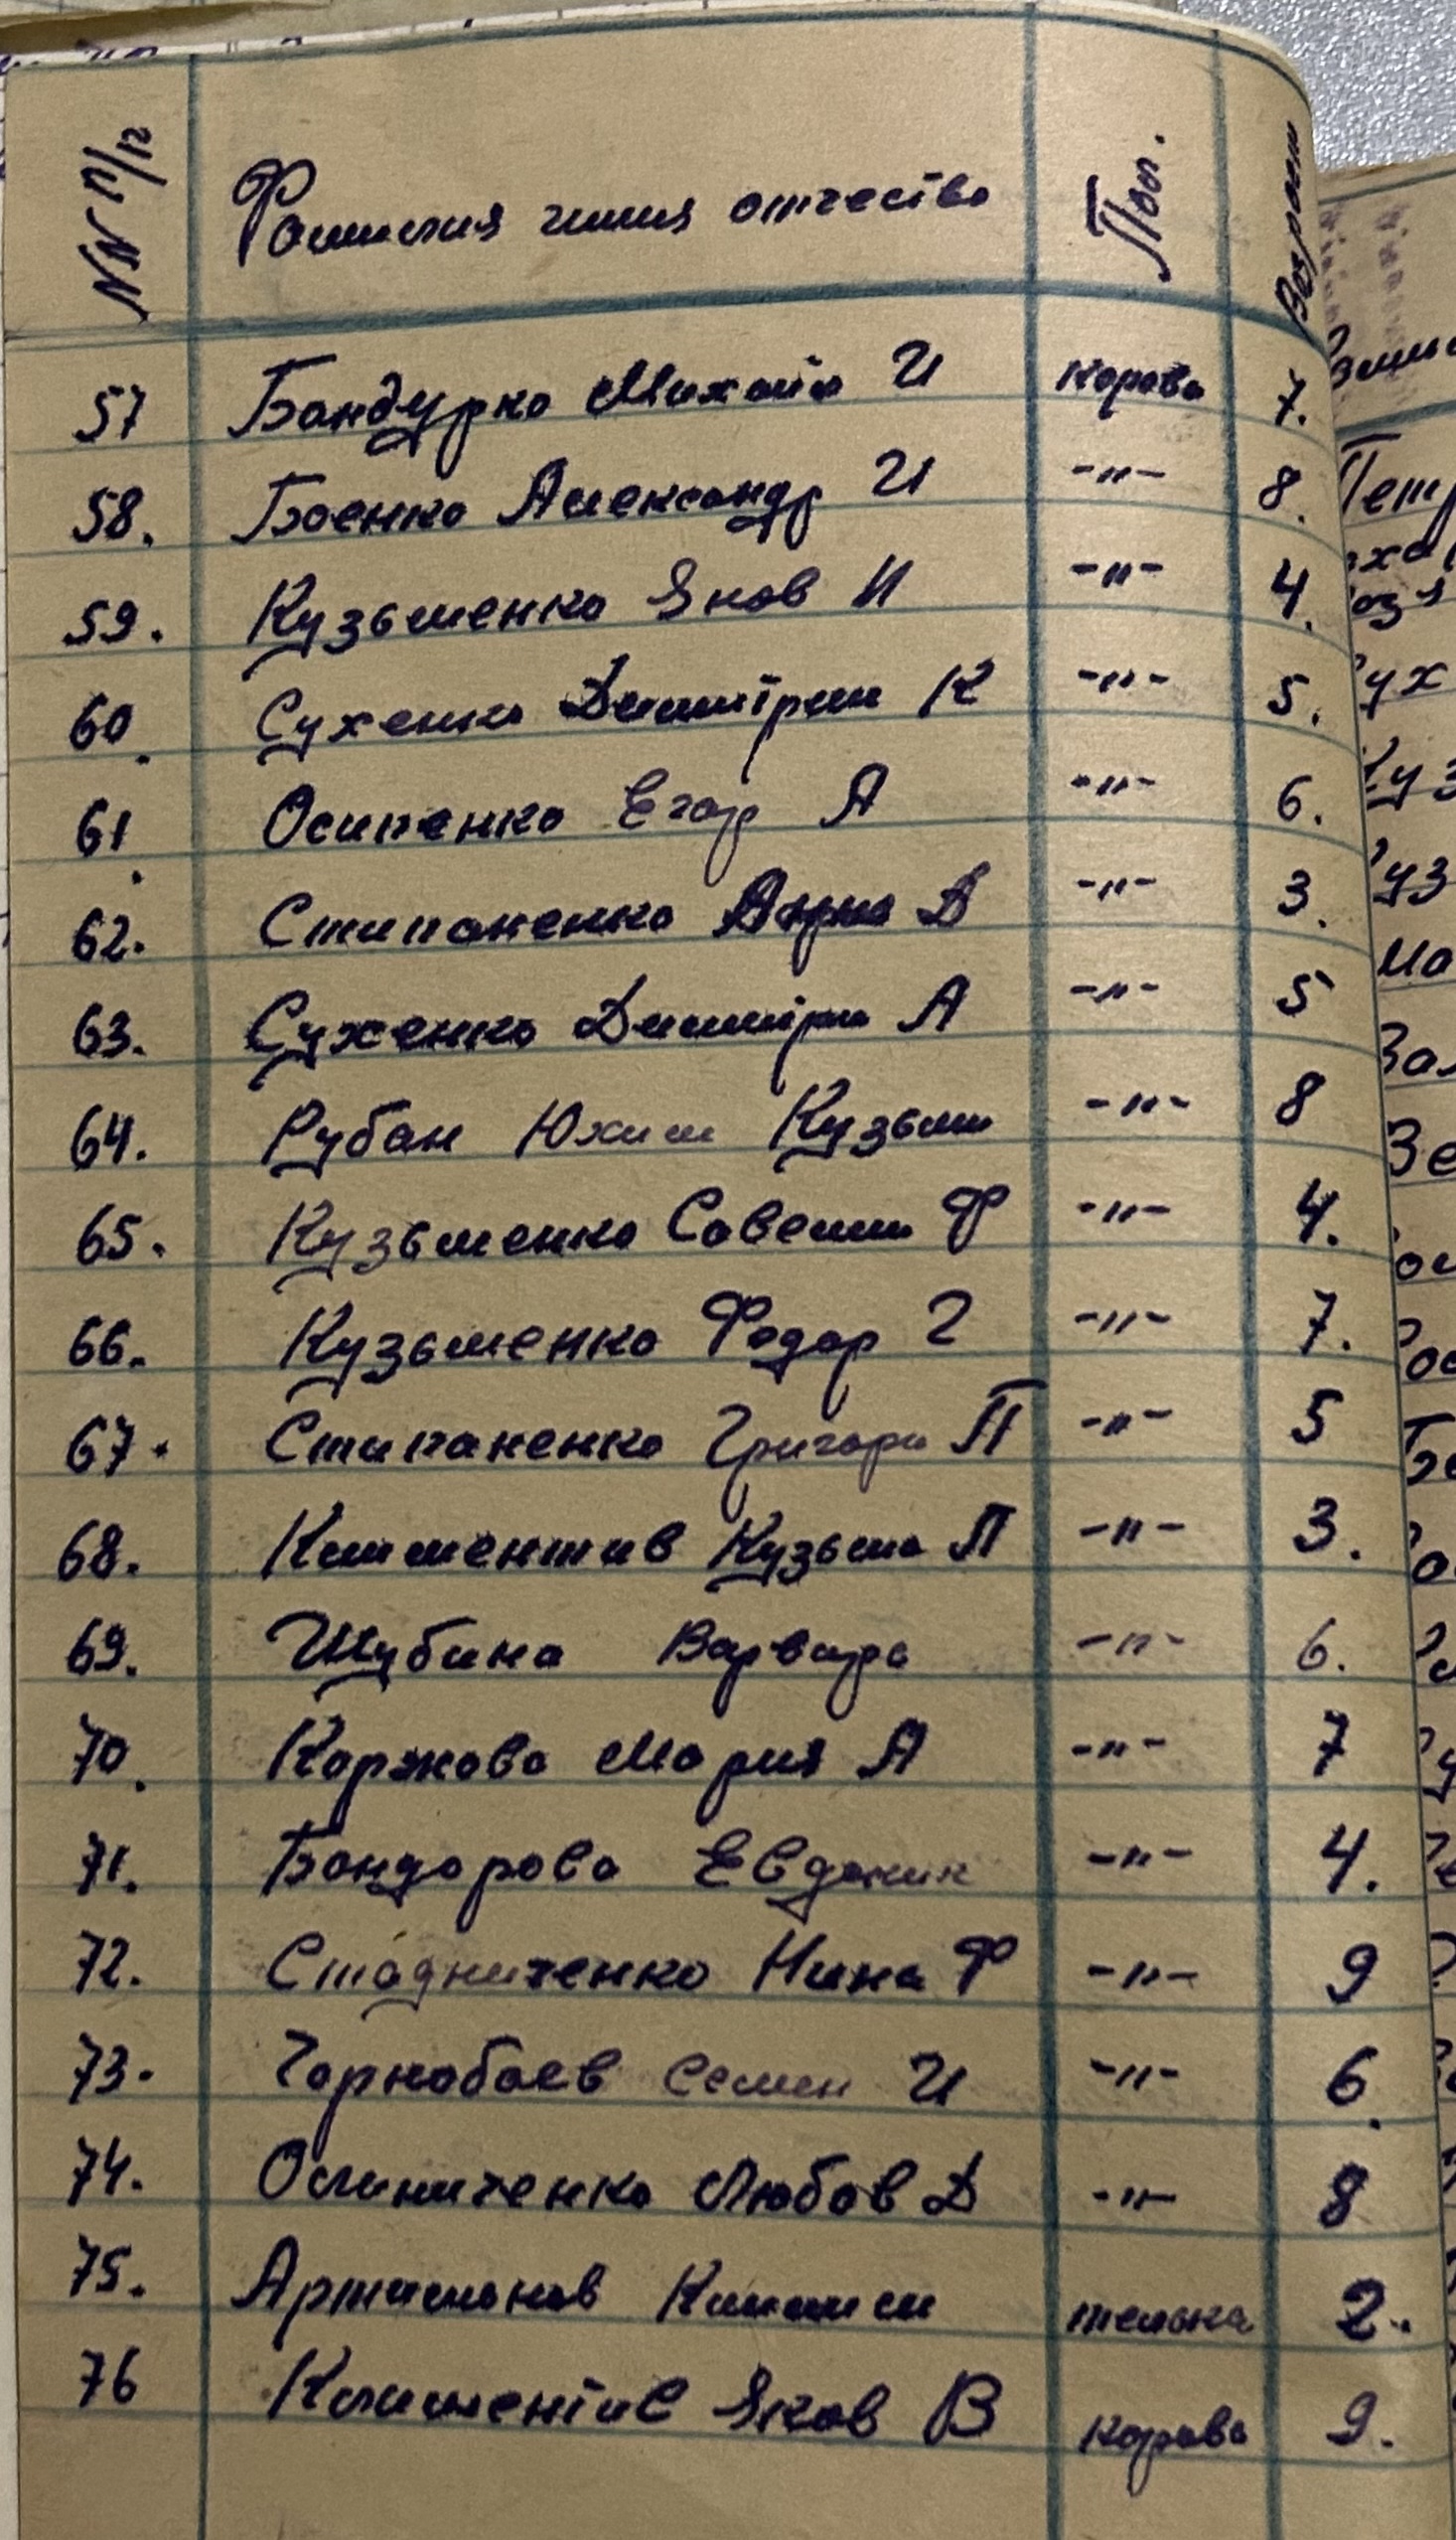 NN п/п Фамилия имия отчество Пол. Возраст
57 Бандурко Михайл И корова 7.
58. Боенко Александр И -"- 8.
59. Кузьменко Яков И -"- 4.
60. Сухенко Димитрий К -"- 5.
61. Осипенко Егор А -"- 6.
62. Стипаненко Д -"- 3.
63. Сухенко Димитри А -"- 5
64. Рубан Юхим Кузьми -"- 8
65. Кузьменко Савелий Ф -"- 4.
66. Кузьменко Федор Г -"- 7.
67. Стипаненко Григори П -"- 5
68. Климентив Кузьма П -"- 3.
69. Шубина Варвара -"- 6.
70. Коржова Мария А -"- 7
71. Бондарова -"- 4.
72. Стадниченко Нина Ф -"- 9
73. Чорнобаев Семен И -"- 6.
74. Олиниченко Любов Д -"- 8
75. Артамонов Клим телка 2.
76 Климентив Яков В корова 9.